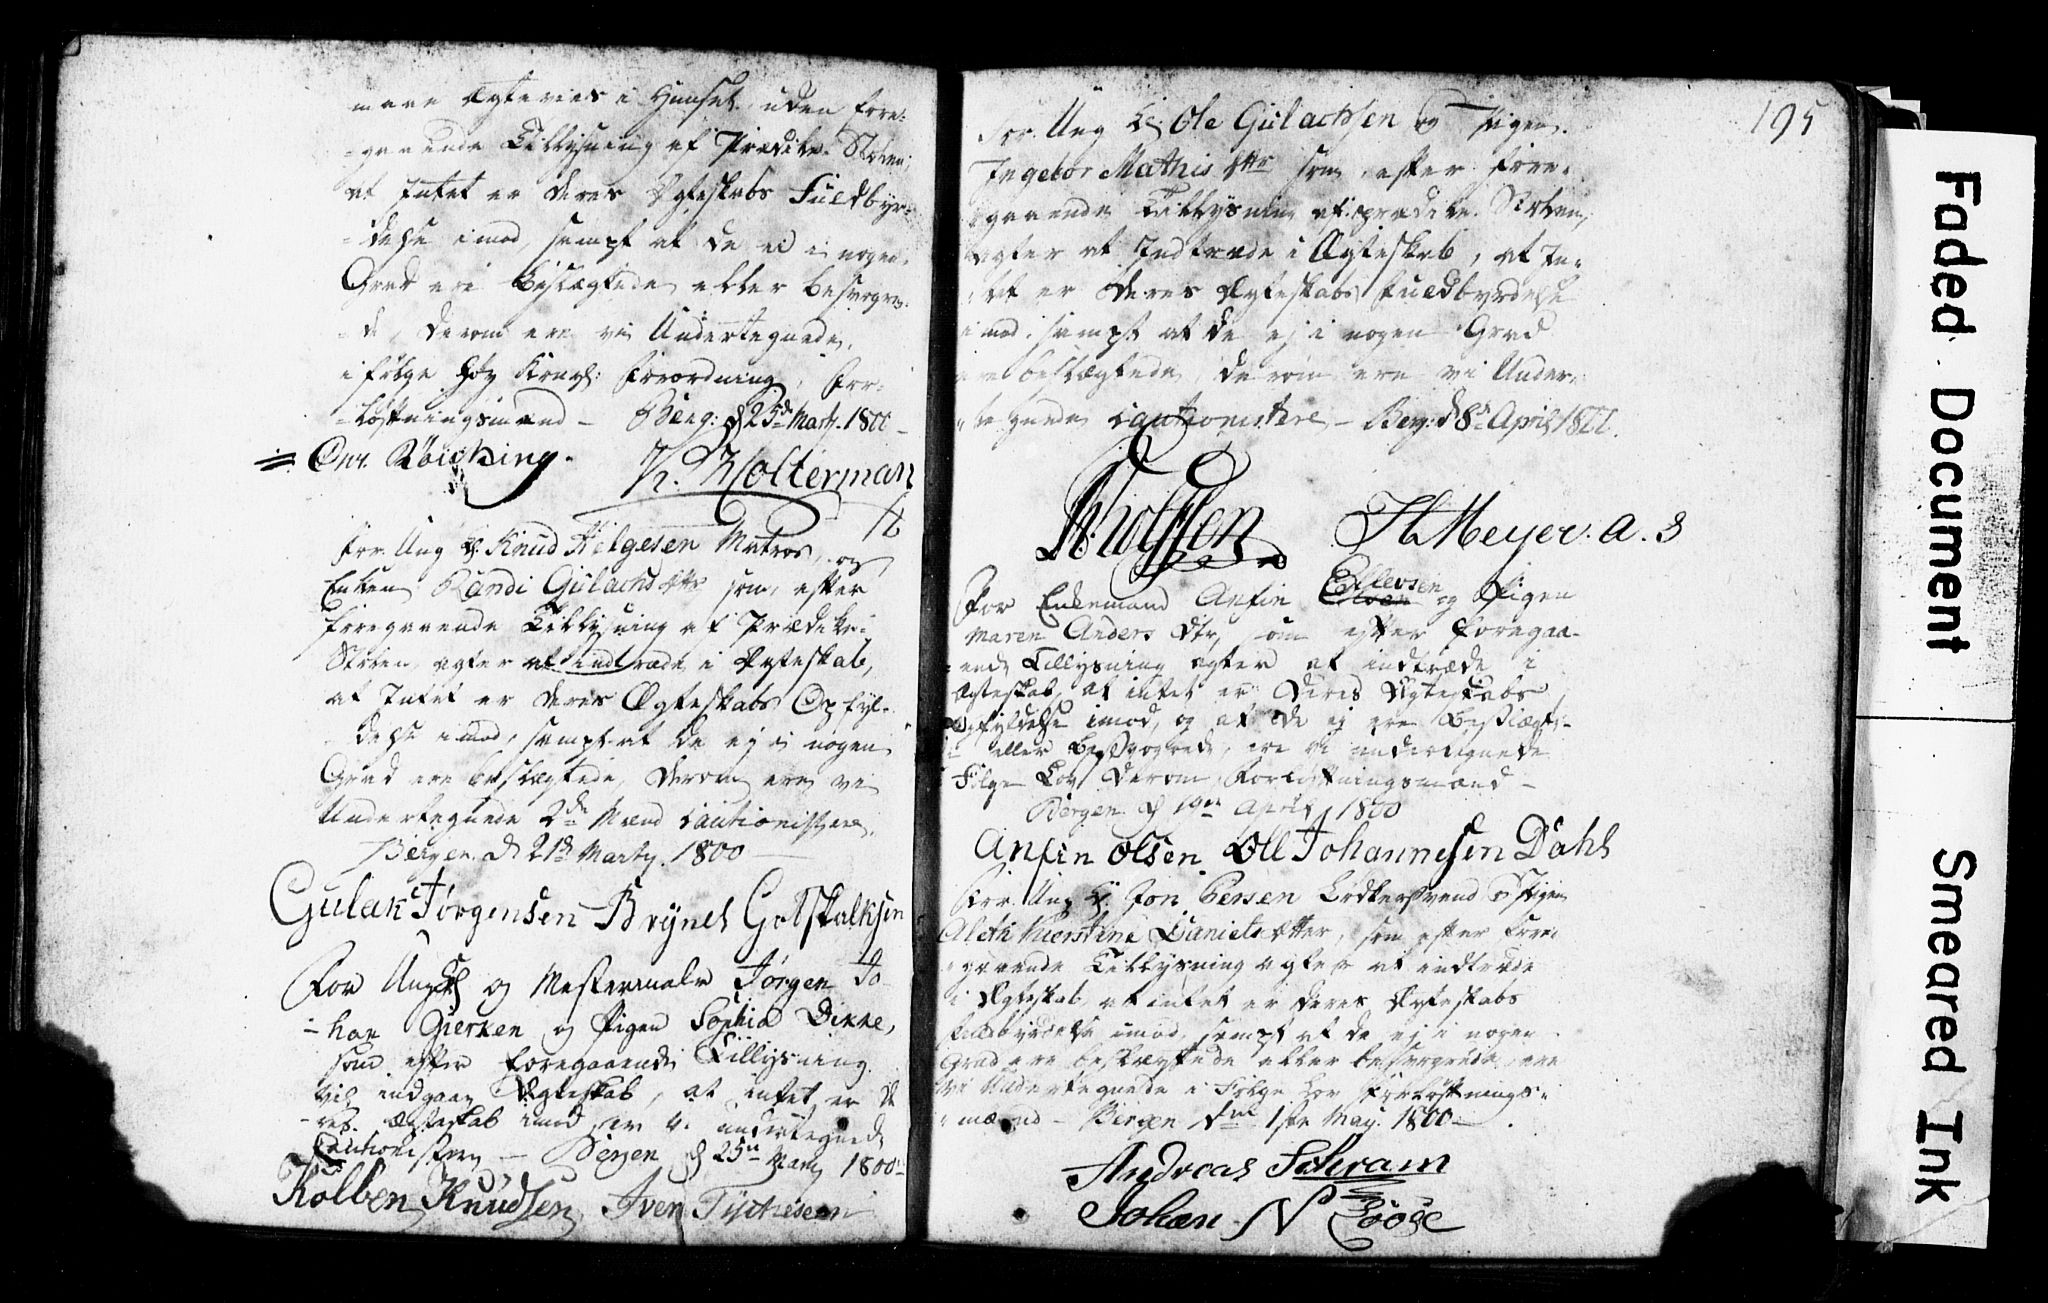 mare Ægtevies i Huuset, uden fore-
-gaaende Tillysning af Prædike-Stolen;
at Intet er deres Ægteskabs Fuldbyr-
-delse imod, sampt at de ei i nogen
Grad ere beslægtede eller besvogre-
-de, derom ere vi Undertegnede,
ifølge høy Kongl: Forordning, For-
-løftningsmænd - Berg: d 25de Marty. 1800 -
Röicking. H. Wolterman
For Ung K: Knud Helgesen Matros, og
Enken Randi Gulachs dttr som efter
foregaaende Tillysning af Prædike-
Stolen agter at indtræde i Ægteskab,
at Intet er deres Ægteskabs Opfyl-
delse imod, sampt at de ej i nogen
Grad ere beslægtede, derom ere vi
Undertegnede 2de Mænd Cautionistere,
Bergen d 21de Marty. 1800
Gulak Jørgensen Brÿnel Gotskalksen
For Ung K og Mestermaler Jørgen Jo
-han Gierken og Pigen Sophia Dikke,
som efter foregaaende Tillysning
vil indgaae Ægteskab, at intet er de
-res Ægteskab imod er vi undertegnede
Cautionistern - Bergen d 25de Marty 1800
Kolben Knudsen Iver Tÿchesen
195
For Ung K: Ole Gulachsen og Pigen
Ingebor Mathis dttr som efter fore-
gaaende Tillysning af prædike Stolen,
agter at Indtræde i Ægteskab, at In-
tet er deres Ægteskabs fuldbyrdelse
imod, sampt at de ej i nogen Grad
ere beslægtede, derom ere vi Under-
tegnede Cautionistere - Berg: d 8de April 1800.
H Meyer. a. s
Ellevsen
For Enkemand Anfin og Pigen
Maren Anders dtr, som efter foregaa-
ende Tillysning agter at indtræde i
Ægteskab, at intet er Deres Ægteskabs
Opfyldelse imod, og at de ej ere Beslægte-
eller Besvogrede, ere vi undertegnede
Følge Lov derom Forløftningsmænd -
Bergen d April 1800
Anfin Olsen Oll Johannesen Dahl
For Ung K: Jon Persen Bødkersvend og Pigen
Aleth Kierstine Daniels dtter, som efter fore-
gaaende Tillysning agter at indtræde
i Ægteskab, at intet er deres Ægteskabs
fuldbyrdelse imod, sampt at de ej i nogen
Grad ere beslægtede eller besvogrede, ere
vi Undertegnede i Følge Lov Forløftnings-
-mænd - Bergen den 1ste May. 1800 -
Andreas Schram
Johan. N
Faded Document
Smeared Ink